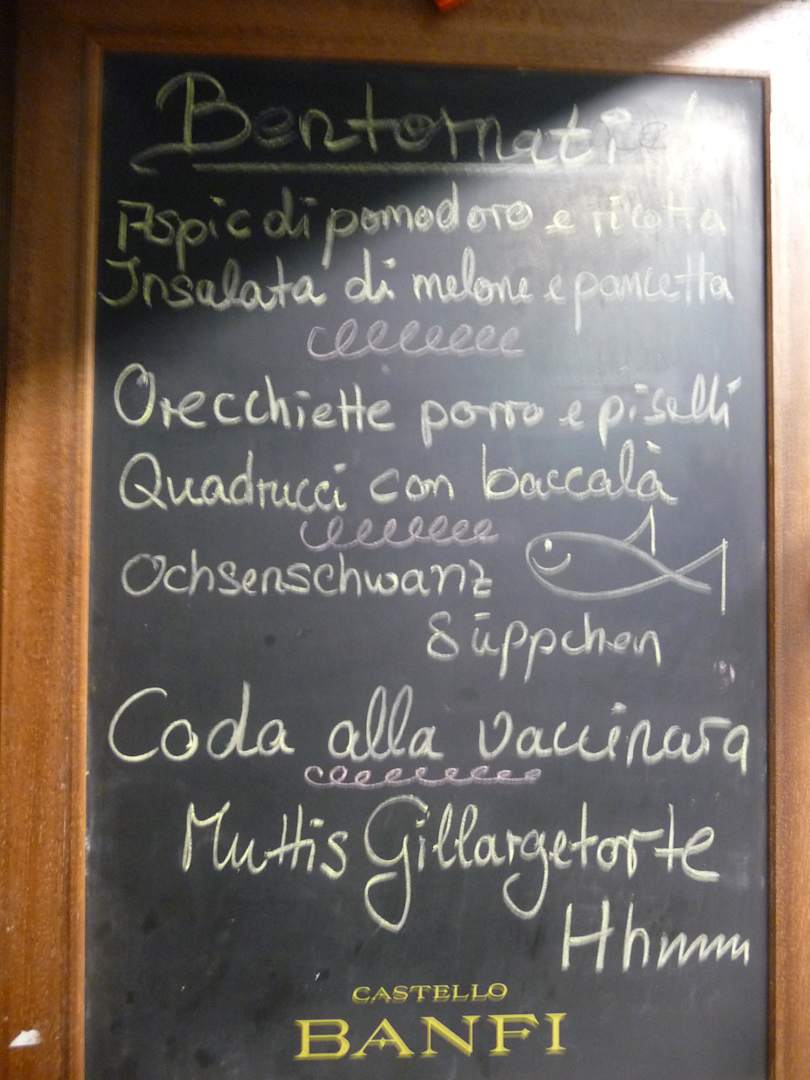 Bentornati!
Aspic di pomodoro e ricotta
Insalata di melone e pancetta
Orecchiette porro e piselli
Quadrucci con baccalà
Ochsenschwanz
Süppchen
Coda alla vaccinara
Muttis Gillargetorte
Hhmmm
CASTELLO
BANFI